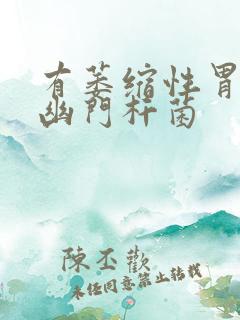 有萎缩性胃
幽門杆菌
陳丕歡
未经同意禁止转载